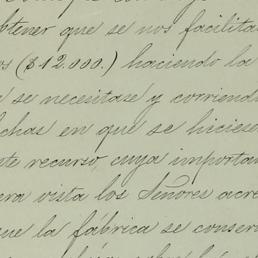 btener que se nos facilita
os ($12.000.) haciendo la
se necesitase y corriend
chas en que se hiciese
te recurso, cuya importan
era vista los Señores acre
ue la fábrica se conser